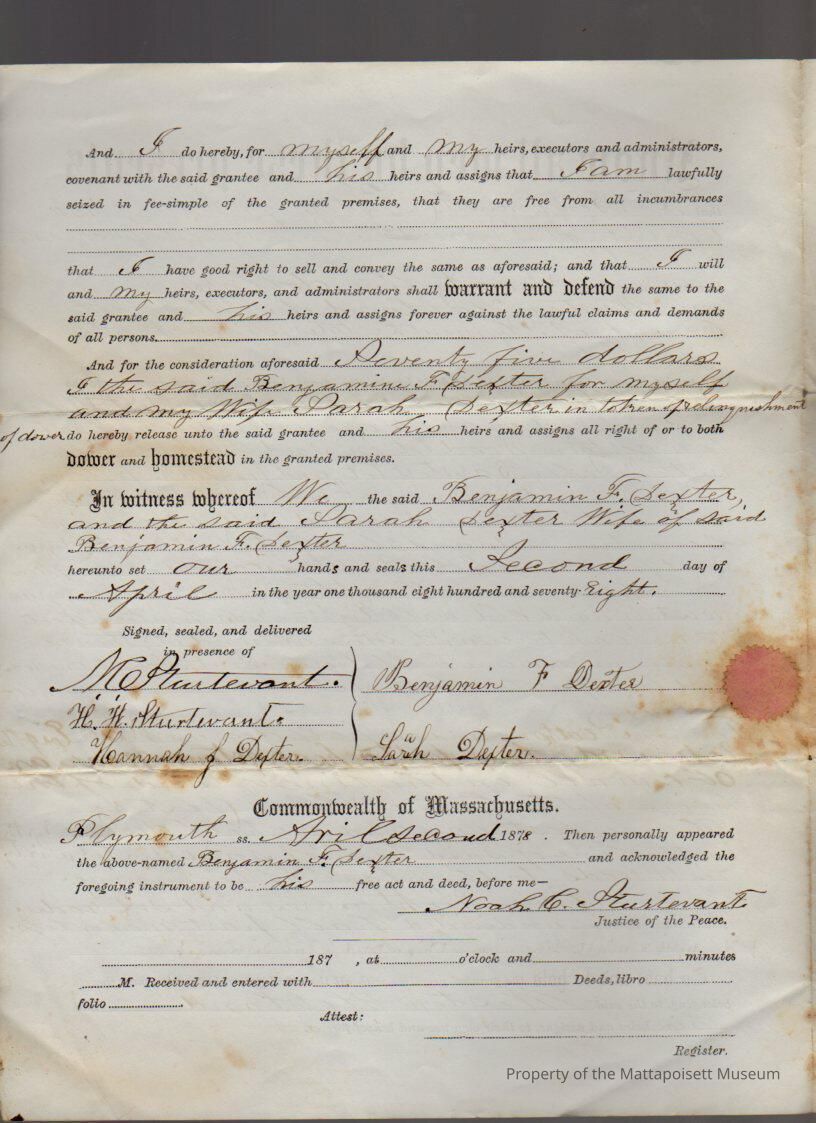 And I do hereby, for myself and my heirs, executors and administrators,
covenant with the said grantee and his heirs and assigns that I am lawfully
seized in fee-simple of the granted premises, that they are free from all incumbrances
that I have good right to sell and convey the same as aforesaid; and that I will
and my heirs, executors, and administrators shall warrant and defend the same to the
said grantee and his heirs and assigns forever against the lawful claims and demands
of all persons.
And for the consideration aforesaid Seventy five dollars
I the said Benjamin F. Dexter for myself
and my Wife Sarah Dexter in token of relinquishment
of dower do hereby release unto the said grantee and his heirs and assigns all right of or to both
dower and homestead in the granted premises.
In witness whereof We the said Benjamin F. Dexter,
and the said Sarah Dexter Wife of said
Benjamin F. Dexter
hereunto set our hands and seals this Second day of
April in the year one thousand eight hundred and seventy-Eight.
Signed, sealed, and delivered
in presence of
Sturtevant. Benjamin F Dexter
H. H. Sturtevant.
Hannah J Dexter. Sarah Dexter.
Commonwealth of Massachusetts.
Plymouth ss. Aril second 1878. Then personally appeared
the above-named Benjamin F. Dexter and acknowledged the
foregoing instrument to be his free act and deed, before me—
Noah C. Sturtevant
Justice of the Peace.
187 , at o'clock and minutes
M. Received and entered with Deeds, libro
folio
Attest:
Register.
Property of the Mattapoisett Museum